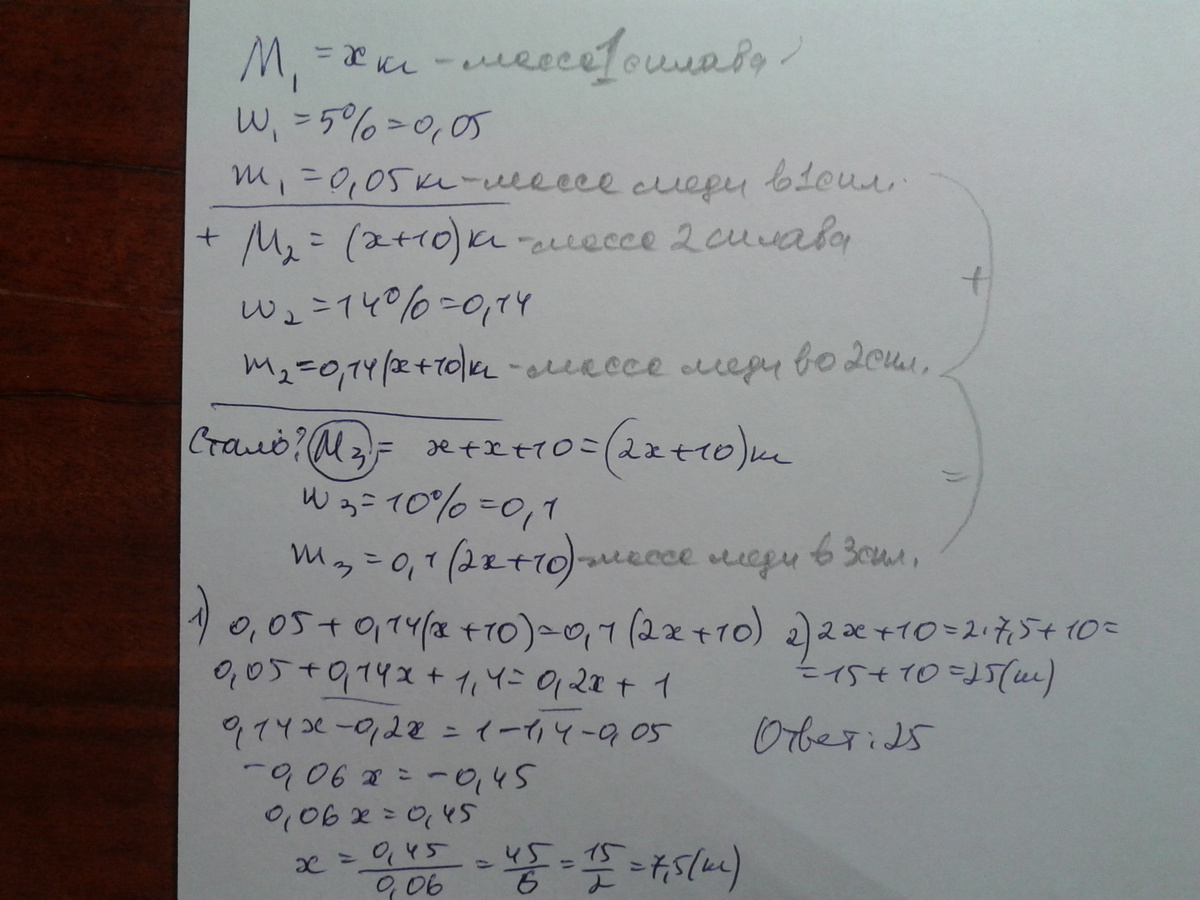 M₁ = x кг - масса 1 сплава
w₁ = 5% = 0,05
m₁ = 0,05 кг - масса меди в 1 спл.
+ M₂ = (x+10) кг - масса 2 сплава
w₂ = 14% = 0,14
m₂ = 0,14(x+10) кг - масса меди во 2 спл.
+
Стало? M₃ = x+x+10 = (2x+10) кг
w₃ = 10% = 0,1
=
m₃ = 0,1(2x+10) - масса меди в 3 спл.
1) 0,05 + 0,14(x+10) = 0,1(2x+10)
0,05 + 0,14x + 1,4 = 0,2x + 1
0,14x - 0,2x = 1 - 1,4 - 0,05
-0,06x = -0,45
0,06x = 0,45
x = 0,45/0,06 = 45/6 = 15/2 = 7,5 (кг)
2) 2x + 10 = 2·7,5 + 10 =
= 15 + 10 = 25 (кг)
Ответ: 25